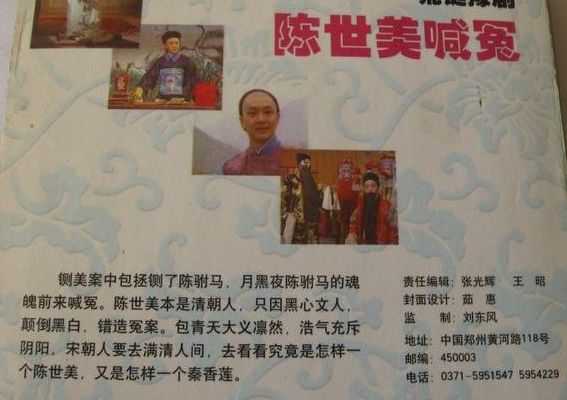 荒诞豫剧
陈世美喊冤
铡美案中包拯铡了陈驸马，月黑夜陈驸马的魂
魄前来喊冤。陈世美本是清朝人，只因黑心文人，
颠倒黑白，错造冤案。包青天大义凛然，浩气充斥
阴阳，宋朝人要去满清人间，去看看究竟是怎样一
个陈世美，又是怎样一个秦香莲。
责任编辑：张光辉 王昭
封面设计：茹惠
监制：刘东风
地址：中国郑州黄河路118号
邮编：450003
电话：0371-5951547 5954229